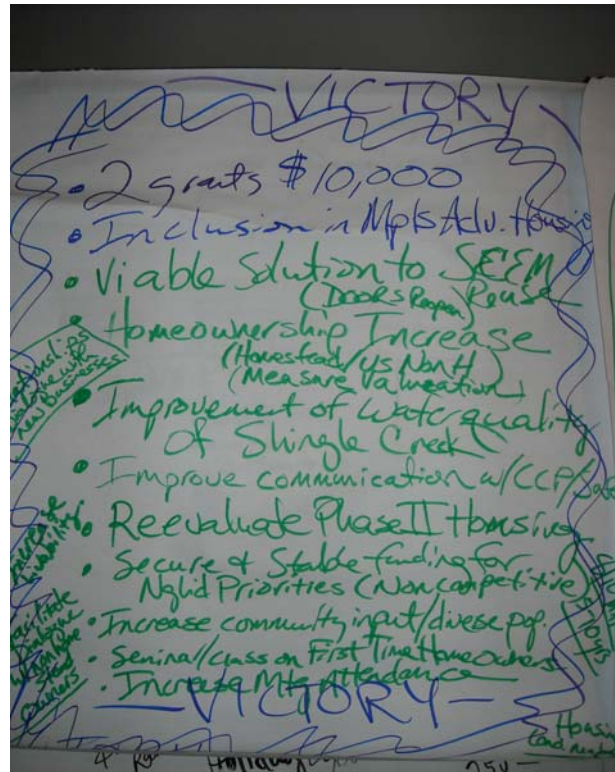 VICTORY
• 2 grants $10,000
• Inclusion in Mpls Adv. Housin
• Viable Solution to SEEM
(Doors Reopen) Reuse
• Homeownership Increase
(Homestead/vs NonH)
(Measure Valueation)
new Businesses
• Improvement of Water quality
of Shingle Creek
• Improve communication w/CCP/Safe
• Reevaluate Phase II Housing
• Secure & Stable funding for
Nghd Priorities (Noncompetitive)
• Increase community input/divese pop.
• Seminar/class on First Time Homeowners
• Increase Mtg Attendance
VICTORY
Increase
Livability
Facilitate
Dialogue
w/ non Home
stead
owners
Housing